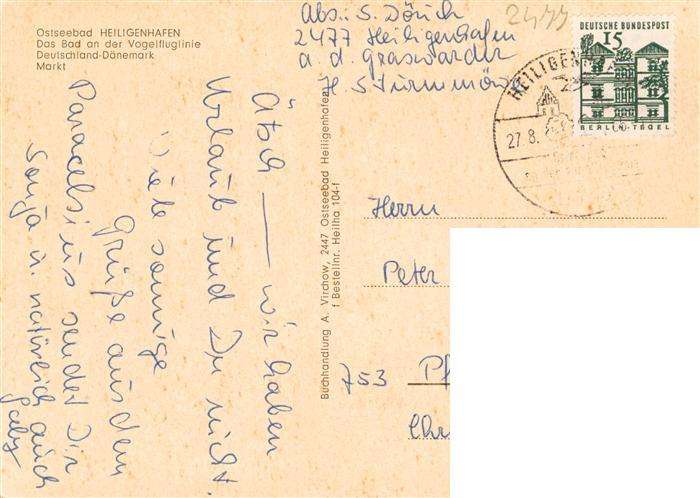 Ostseebad HEILIGENHAFEN
Das Bad an der Vogelfluglinie
Deutschland-Dänemark
Markt
Abs.: S. Dörich
2477 Heiligenhafen
a. d. Graswarder
H. Sturmmöw
2477
DEUTSCHE BUNDESPOST
15
BERLIN-TEGEL
HEILIGEN
27.8.
Ätsch — wir haben
Urlaub und Du nicht.
Viele sonnige
Grüße aus dem
Paracelsius sendet Dir
Sonja u. natürlich auch
Gaby
Buchhandlung A. Virchow, 2447 Ostseebad Heiligenhafen
f Bestellnr. Heilha 104-f
Herrn
Peter
753 Pf
Chr